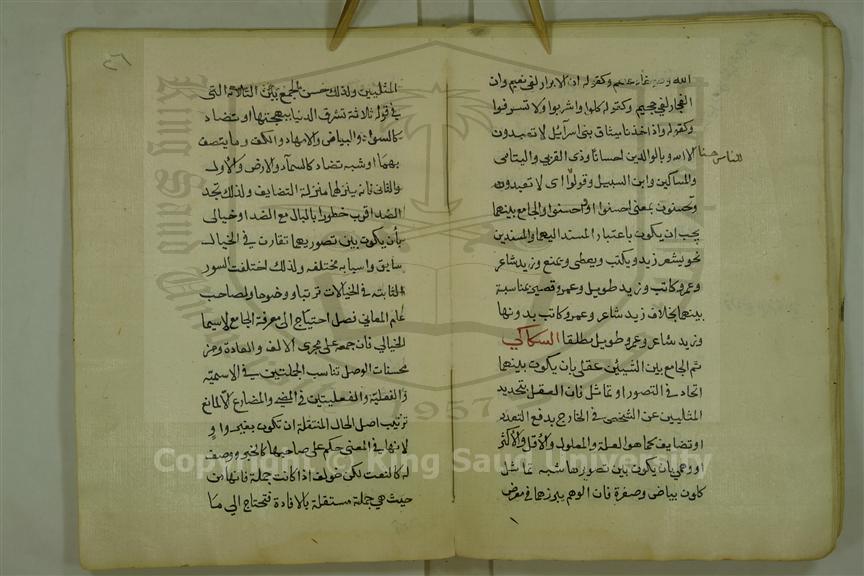 الله وهو خادعهم وكقوله ان الابرار لفي نعيم وان
الفجار لفي جحيم وكقوله كلوا واشربوا ولا تسرفوا
وكقوله واذ اخذنا ميثاق بني اسرآئيل لا تعبدون
الا الله وبالوالدين احسانا وذي القربي واليتامى
للناس حسنا
والمساكين وابن السبيل وقولوا اى لا تعبدون
وتحسنون بمعنى احسنوا او واحسنوا والجامع بينهما
يجب ان يكون باعتبار المسند اليهما والمسندين
نحو يشعر زيد ويكتب ويعطى ويمنع وزيد شاعر
وعمرو كاتب وزيد طويل وعمرو قصير بمناسبة
بينهما بخلاف زيد شاعر وعمرو كاتب بدونها
وزيد شاعر وعمرو طويل مطلقا السكاكي
ثم الجامع بين الشيئين عقلى بان يكون بينهما
اتحاد في التصور او تماثل فان العقل بتجريد
المثليين عن التشخص في الخارج يدفع التعدد
او تضايف كما هو العلة والمعلول والاقل والاكثر
او وهمي بان يكون بين تصوريهما شبه تماثل
كلون بياض وصفرة فان الوهم يبرزهما في معرض
المثليين ولذلك حسن الجمع بين الثلاثة التى
في قوله ثلاثة تشرق الدنيا ببهجتها او تضاد
كالسواد والبياض والايمان والكفر وما يتصف
بهما او شبه تضاد كالسمآء والارض والاول
والثاني فانه ينزلهما منزلة التضايف ولذلك تجد
الضد اقرب خطورا بالبال مع الضد او خيالى
بأن يكون بين تصوريهما تقارن في الخيال
سابق واسبابه مختلفه ولذلك اختلفت الصور
الثابتة في الخيالات ترتبا ووضوحا ولصاحب
علم المعاني فضل احتياج الى معرفة الجامع لاسيما
الخيالي فان جمعه على مجرى الالف والعادة ومن
محسنات الوصل تناسب الجملتين في الاسمية
والفعلية والفعليتين في المضي والمضارع الا لمانع
ترتيب اصل الحال المنتقلة ان تكون بغير واو
لانها في المعنى حكم على صاحبها كالخبر ووصف
له كالنعت لكن خولف اذا كانت جملة فانها من
حيث هي جملة مستقلة بالافادة فتحتاج الى ما
King Saud University
1957
Copyright © King Saud University